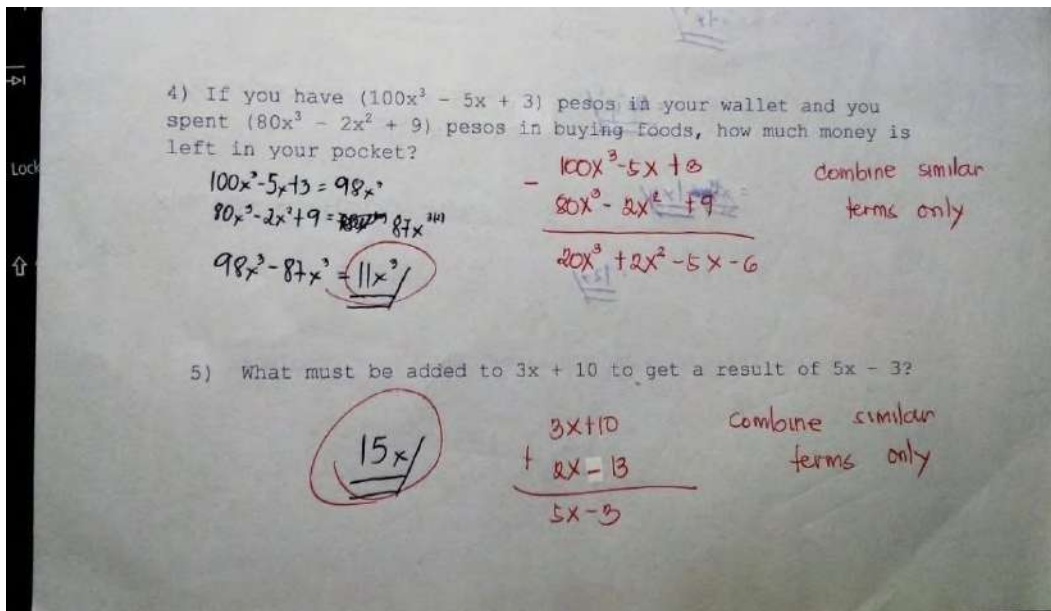 Lock
4) If you have (100x³ - 5x + 3) pesos in your wallet and you
spent (80x³ - 2x² + 9) pesos in buying foods, how much money is
left in your pocket?
100x³-5x+3 = 98x³
80x³-2x²+9 = 87x
98x³-87x³ = 11x³
- 100x³-5x+3
80x³-2x²+9
20x³+2x²-5x-6
combine similar
terms only
5) What must be added to 3x + 10 to get a result of 5x - 3?
15x
3x+10
+ 2x-13
5x-3
combine similar
terms only